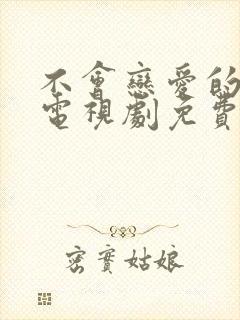 不會戀愛的
電視劇免費
密實姑娘